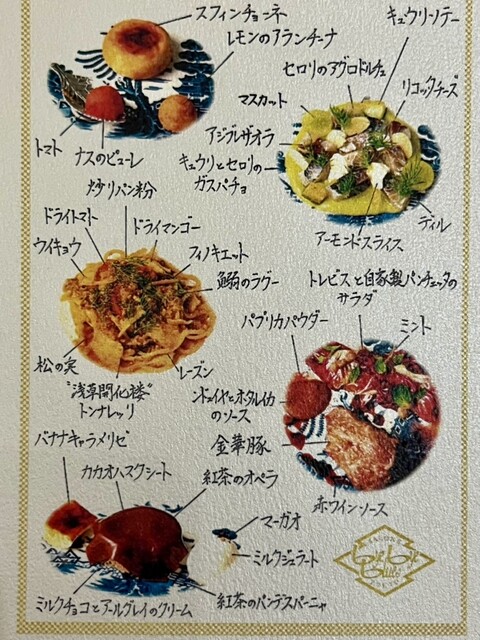 スフィンチョーネ
レモンのアランチーナ
トマト
ナスのピューレ
キュウリソテー
セロリのアグロドルチェ
リコッタチーズ
マスカット
アジブレザオラ
キュウリとセロリの
ガスパチョ
アーモンドスライス
ディル
炒りパン粉
ドライトマト
ドライマンゴー
ウイキョウ
フィノキエット
鰯のラグー
松の実
レーズン
"浅草開化楼"
トンナレッリ
トレビスと自家製パンチェッタの
サラダ
パプリカパウダー
ミント
ンドゥイヤとホタルイカ
のソース
金華豚
赤ワインソース
バナナキャラメリゼ
カカオハスクシート
紅茶のオペラ
マーガオ
ミルクジェラート
ミルクチョコとアールグレイのクリーム
紅茶のパンデスパーニャ